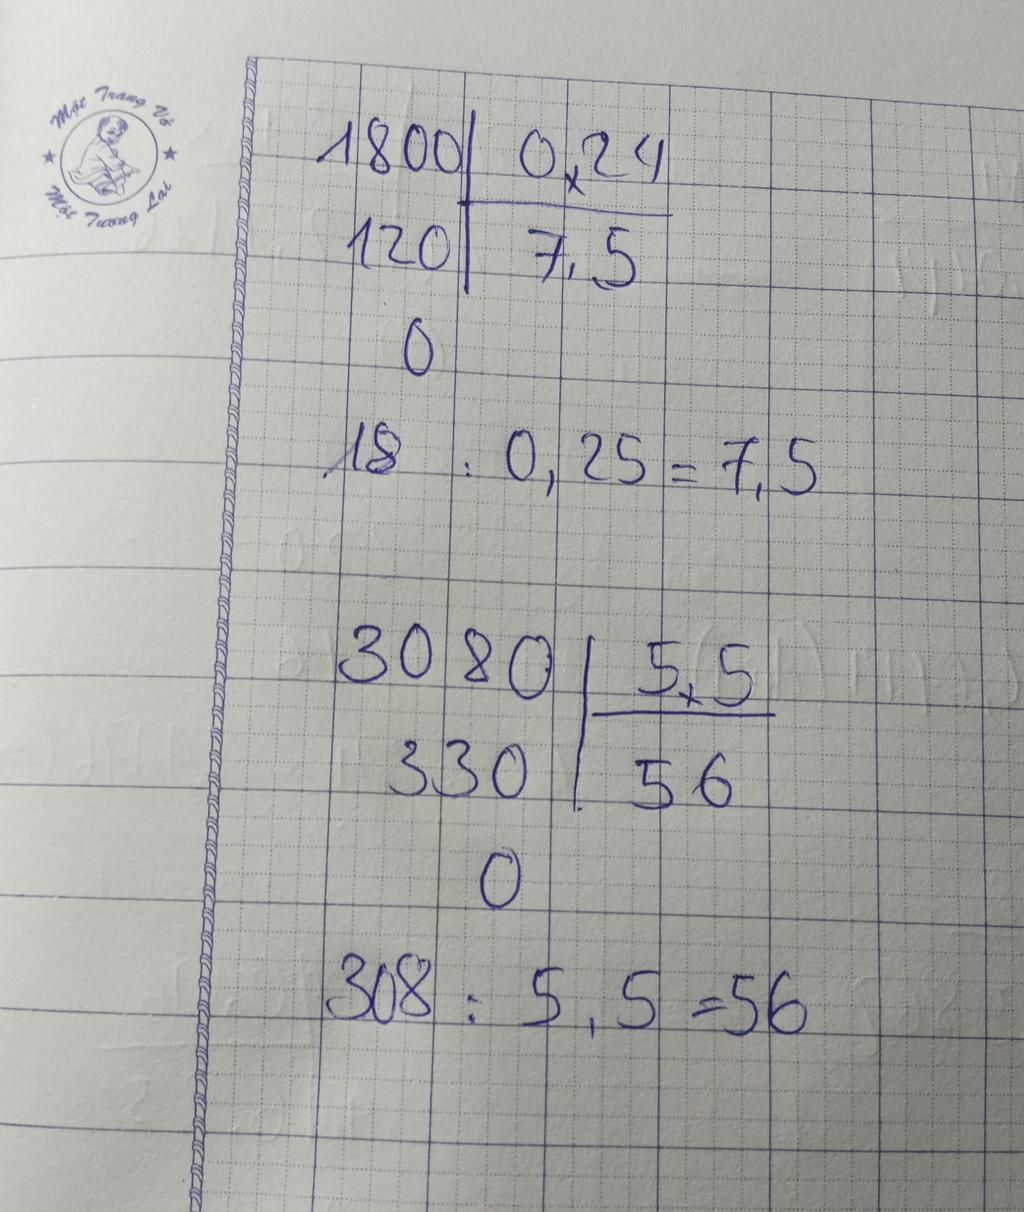 Một Trang Vở
Một Tương Lai
1800 0,24
120 7,5
0
18 : 0,25 = 7,5
3080 5,5
330 56
0
308 : 5,5 = 56